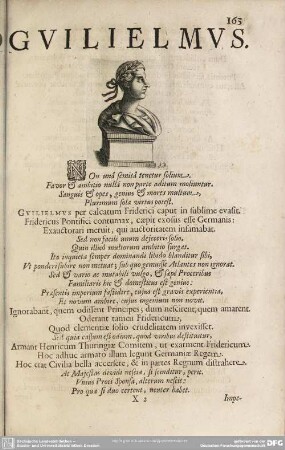 163
GVILIELMVS.
NOn unâ semitâ tenetur solium.
Favor & ambitio nullâ non parte aditum moliuntur.
Sanguis & opes, genius & mores multum,
Plurimum sola virtus potest.
GVILIELMVS per calcatum Friderici caput in sublime evasit.
Fridericus Pontifici contumax, cœpit exosus esse Germanis:
Exauctorari meruit, qui auctoritatem infamabat.
Sed non facilè unum deseretur solio,
Quin illud multorum ambitio surgat.
Ita inquieta semper dominandi libido blanditur sibi,
Vt ponderi subire non metuat; sub quo gemuisse Atlantes non ignorat.
Sed & varia ac mutabili vulgo, & sæpe Proceribus
Familiaris hic & domesticus est genius:
Præsentis imperium fastidire, cujus est gravis experientia,
Et novum ambire, cujus ingenium non norit.
Ignorabant, quem odissent Principes; dum nescirent, quem amarent.
Oderant tamen Fridericum,
Quod clementiæ folio crudelitatem invexisset.
Sed quia causum est odium, quod viribus destituitur,
Armant Henricum Thuringiæ Comitem, ut exarment Fridericum.
Hoc adhuc armato illum legunt Germaniæ Regem.
Hoc erat Civilia bella accersere, & in partes Regnum distrahere.
At Majestas dividi nescia, si scinditur, perit.
Vnius Proci Sponsa, alterum nescit:
Pro qua si duo certent, neuter habet.
X 2
Impe-